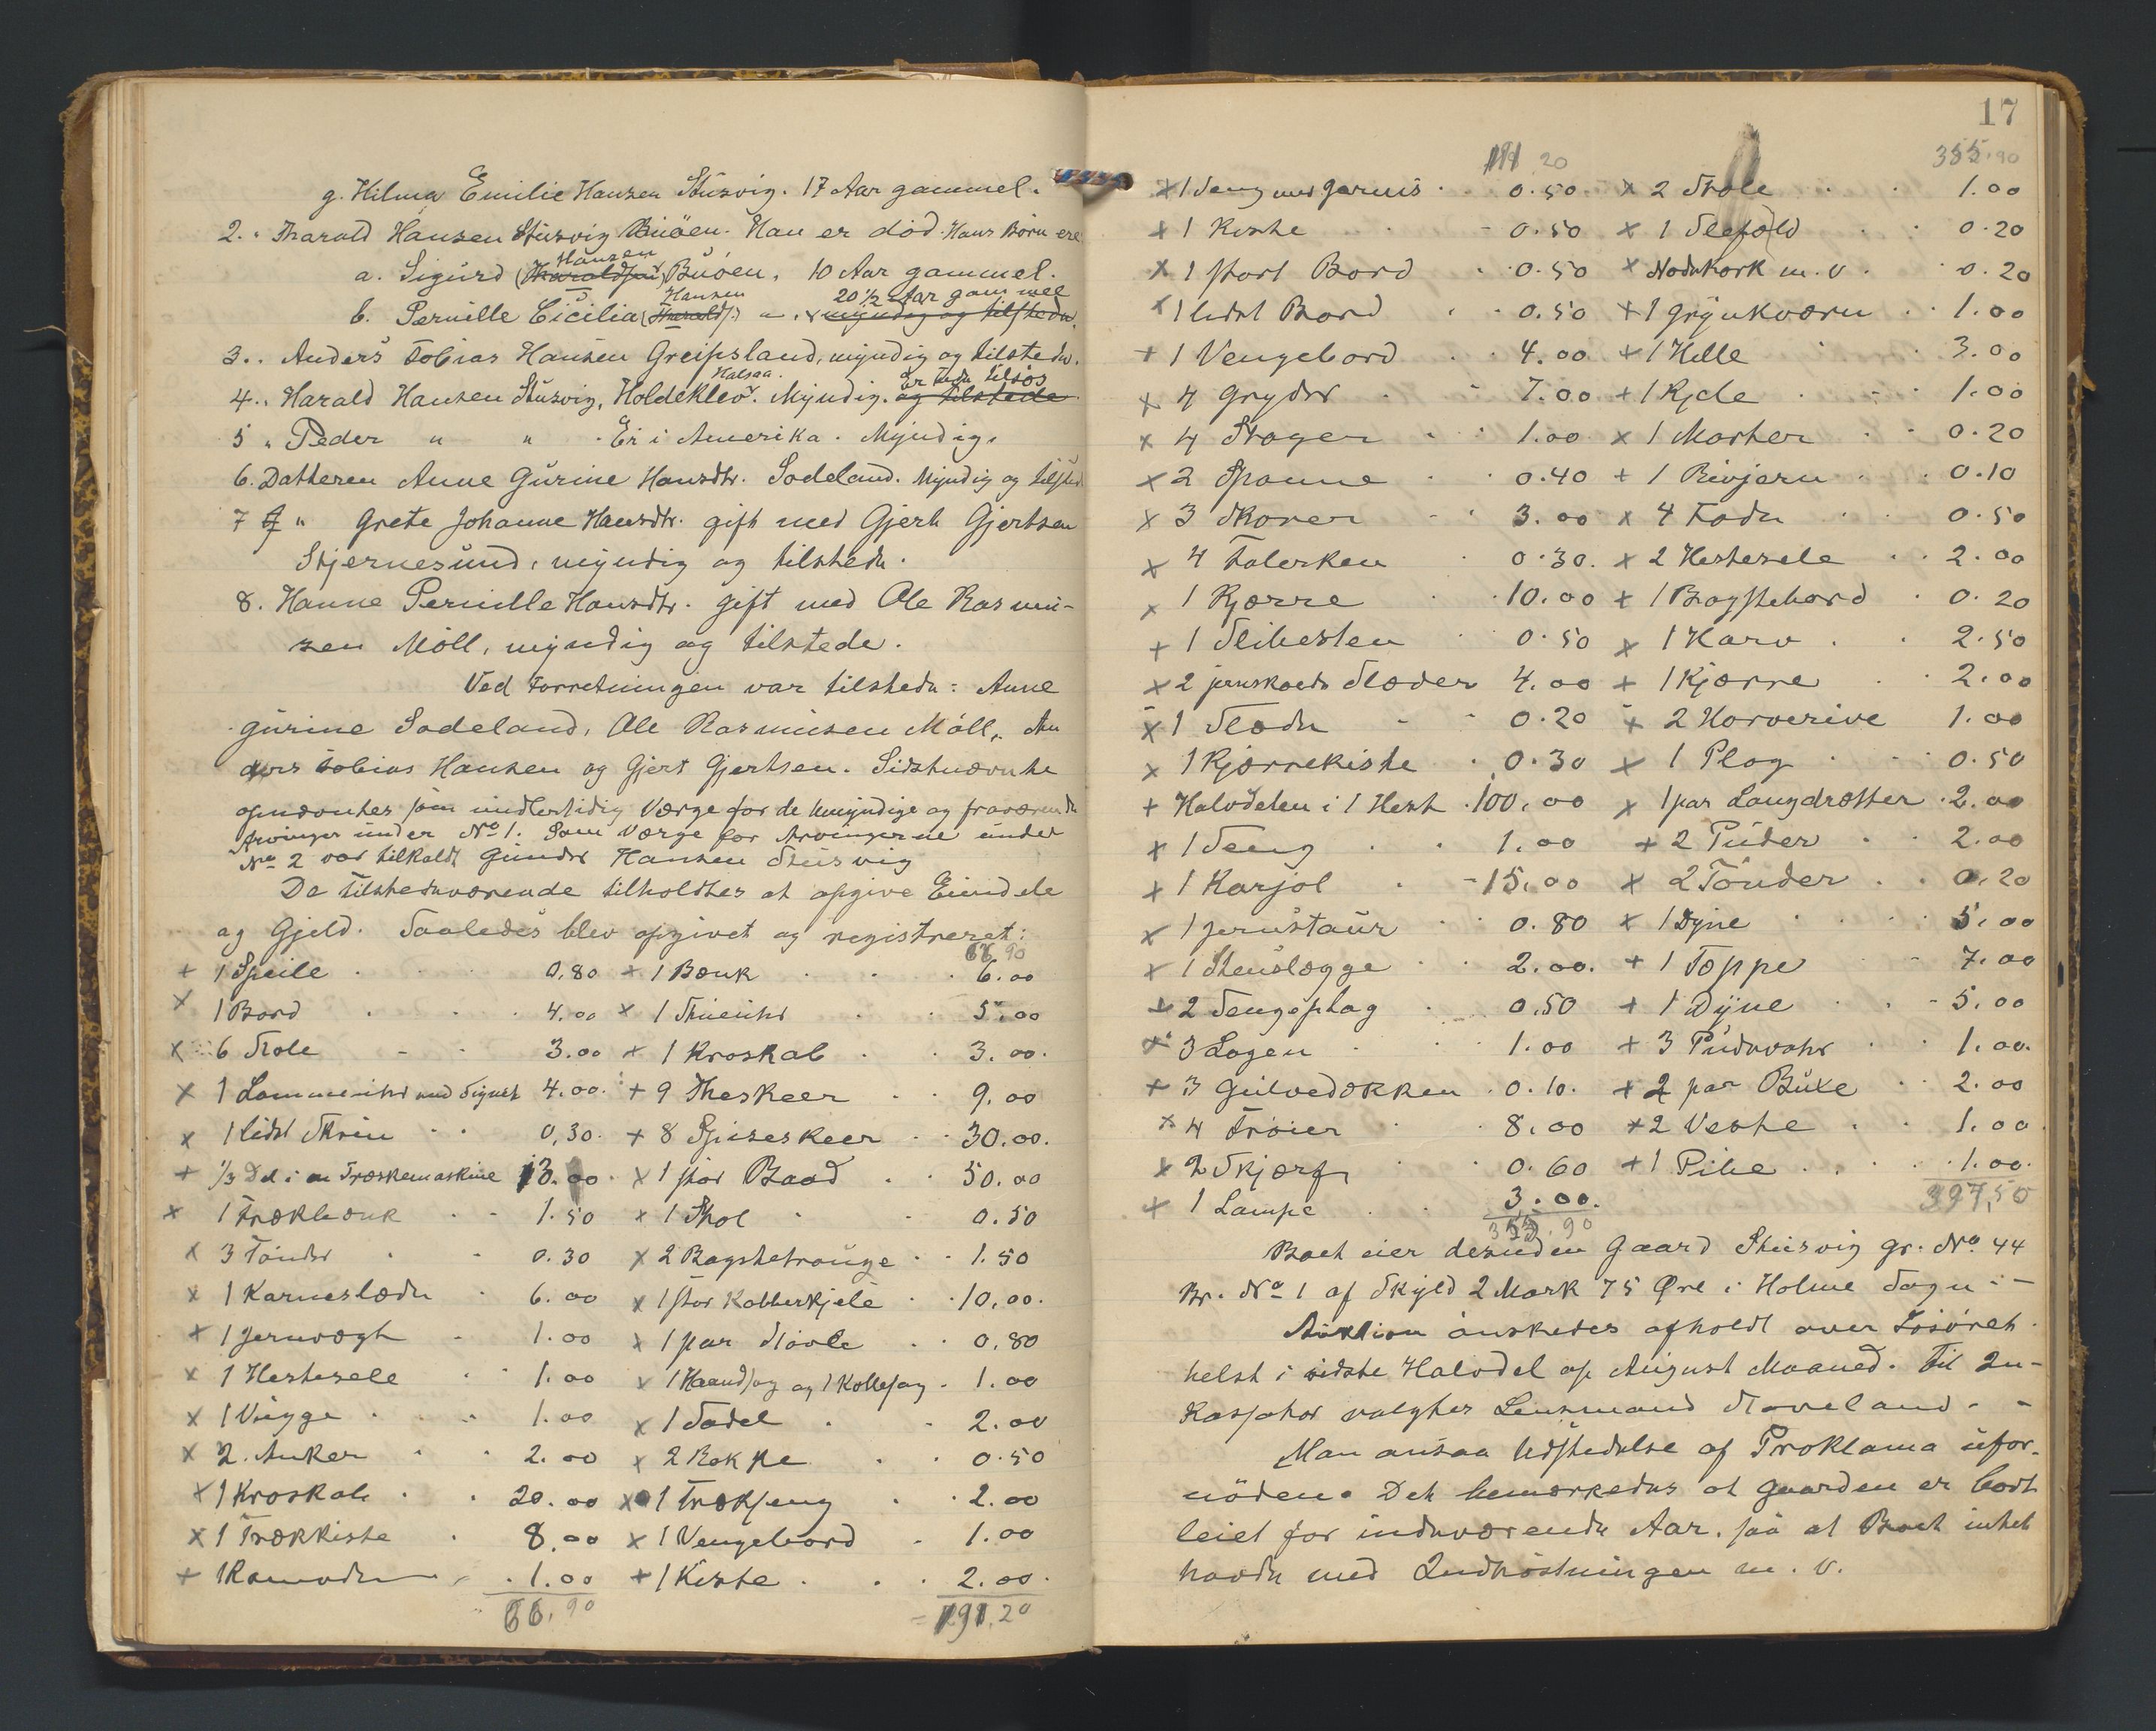 g. Hilma Emilie Hansen Stusvig. 17 Aar gammel.
2. Tharald Hansen Stusvig Buöen. Han er död. Hans Börn ere
Hansen
a. Sigurd (Tharaldsen) Buöen, 10 Aar gammel.
Hansen 20 1/2 Aar gammel
b. Pernille Cicilia (Tharalds.) " . myndig og tilstede.
3. Anders Tobias Hansen Greipsland, myndig og tilstede.
Halsaa. er tede tilsös
4. Harald Hansen Stusvig, Holdeklev. Myndig. og tilstede
5 " Peder " " . Er i Amerika. Myndig.
6. Datteren Anne Gurine Hansdtr. Sodeland. Myndig og tilsted
7 " Grete Johanne Hansdtr. gift med Gjert Gjertsen
Stjernesund, myndig og tilstede.
8. Hanne Pernille Hansdtr. gift med Ole Rasmu-
sen Möll, myndig og tilstede.
Ved Forretningen var tilstede: Anne
Gurine Sodeland, Ole Rasmusen Möll, An
ders Tobias Hansen og Gjert Gjertsen. Sidstnævnte
opnævntes som midlertidig Værge for de Umyndige og fraværende
Arvinger under No 1. Som Værge for Arvingerne under
No 2 var tilkaldt Gunder Hansen Stusvig
De tilstedeværende tilholdtes at opgive Eiendele
og Gjeld. Saaledes blev opgivet og registreret:
66 90
+ 1 Speile 0,80 + 1 Bænk 6.00
x 1 Bord 4.00 x 1 Stueuhr 5.00
x 6 Stole 3.00 + 1 Kroskab 3.00.
x 1 Lommeuhr med Signet 4.00. + 9 Theskeer 9.00
x 1 lidet Skrin 0,30. + 8 Spiseskeer 30.00.
+ 1/3 Del i en Træskemaskine 13.00 x 1 stor Baad 50.00
x 1 Trækbænk 1.50 x 1 Stol 0.50
x 3 Tönder 0.30 x 2 Bagstetrouge 1.50
x 1 Karneslæde 6.00 x 1 stor Kobberkjele 10.00.
+ 1 Jernvægt 1.00 x 1 par Stövle 0.80
x 1 Hestesele 1.00 x 1 Haandsag og 1 Kollesag 1.00
x 1 Vugge 1.00 x 1 Sadel 2.00
x 2. Anker 2.00 x 2 Bokke 0.50
x 1 Kroskab 20.00 x 1 Træksseng 2.00
x 1 Trækkiste 8.00 x 1 Vengebord 1.00
+ 1 Ramede 1.00 + 1 Kiste 2.00.
66,90 191.20
17
191 20 355.90
x 1 Seng med Jernis 0.50 x 2 Stole 1.00
+ 1 Kiste 0.50 x 1 Slefald 0.20
x 1 stort Bord 0.50 x Nodekork m.v. 0.20
x 1 lidet Bord 0.50 + 1 Grynkværn 1.00
+ 1 Vengebord 4.00 + 1 Helle 3.00
x 4 Gryder 7.00 + 1 Kjele 1.00
x 4 Stager 1.00 x 1 Morter 0.20
x 2 Spanne 0.40 + 1 Rivjern 0.10
x 3 Skorer 3.00 x 4 Fade 0.50
x 4 Talerken 0.30. x 2 Hestesele 2.00
x 1 Kjærre 10.00 + 1 Bagstebord 0.20
+ 1 Slibesten 0.50 x 1 Karv 2.50
x 2 jernskoede Slæder 4.00 + 1 Kjærre 2.00
x 1 Slæde 0.20 x 2 Horverive 1.00
x 1 Kjærrekiste 0.30 x 1 Plog 0.50
+ Halvdelen i 1 Hest 100.00 x 1 par Langdrætter 2.00
x 1 Seng 1.00 + 2 Puder 2.00
+ 1 Karjol 15.00 x 2 Tönder 0.20
x 1 Jernstaur 0.80 x 1 Dyne 5.00
x 1 Stenslægge 2.00. + 1 Tæppe 7.00
x 2 Sengeplag 0.50 + 1 Dyne 5.00
x 3 Lagen 1.00 + 3 Pudevahr 1.00.
+ 3 Gulvedækken 0.10. + 2 par Buxe 2.00
x 4 Tröier 8.00 + 2 Veste 1.00
x 2 Skjærf 0.60 + 1 Pibe 1.00.
x 1 Lampe 3.00. 397,50
355.90
Boet eier desuden Gaard Stusvig gr. No 44
Br. No 1 af Skyld 2 Mark 75 Øre i Holme Sogn
Auktion önskedes afholdt over Lösöret
helst i sidste Halvdel af August Maaned. Til In-
kassator valgtes Lensmand Staveland.
Man ansaa Udstedelse af Proklama ufor-
nöden. Det bemærkedes at Gaarden er bort
leiet for indeværende Aar, saa at Boet intet
havde med Indhöstningen m.v.